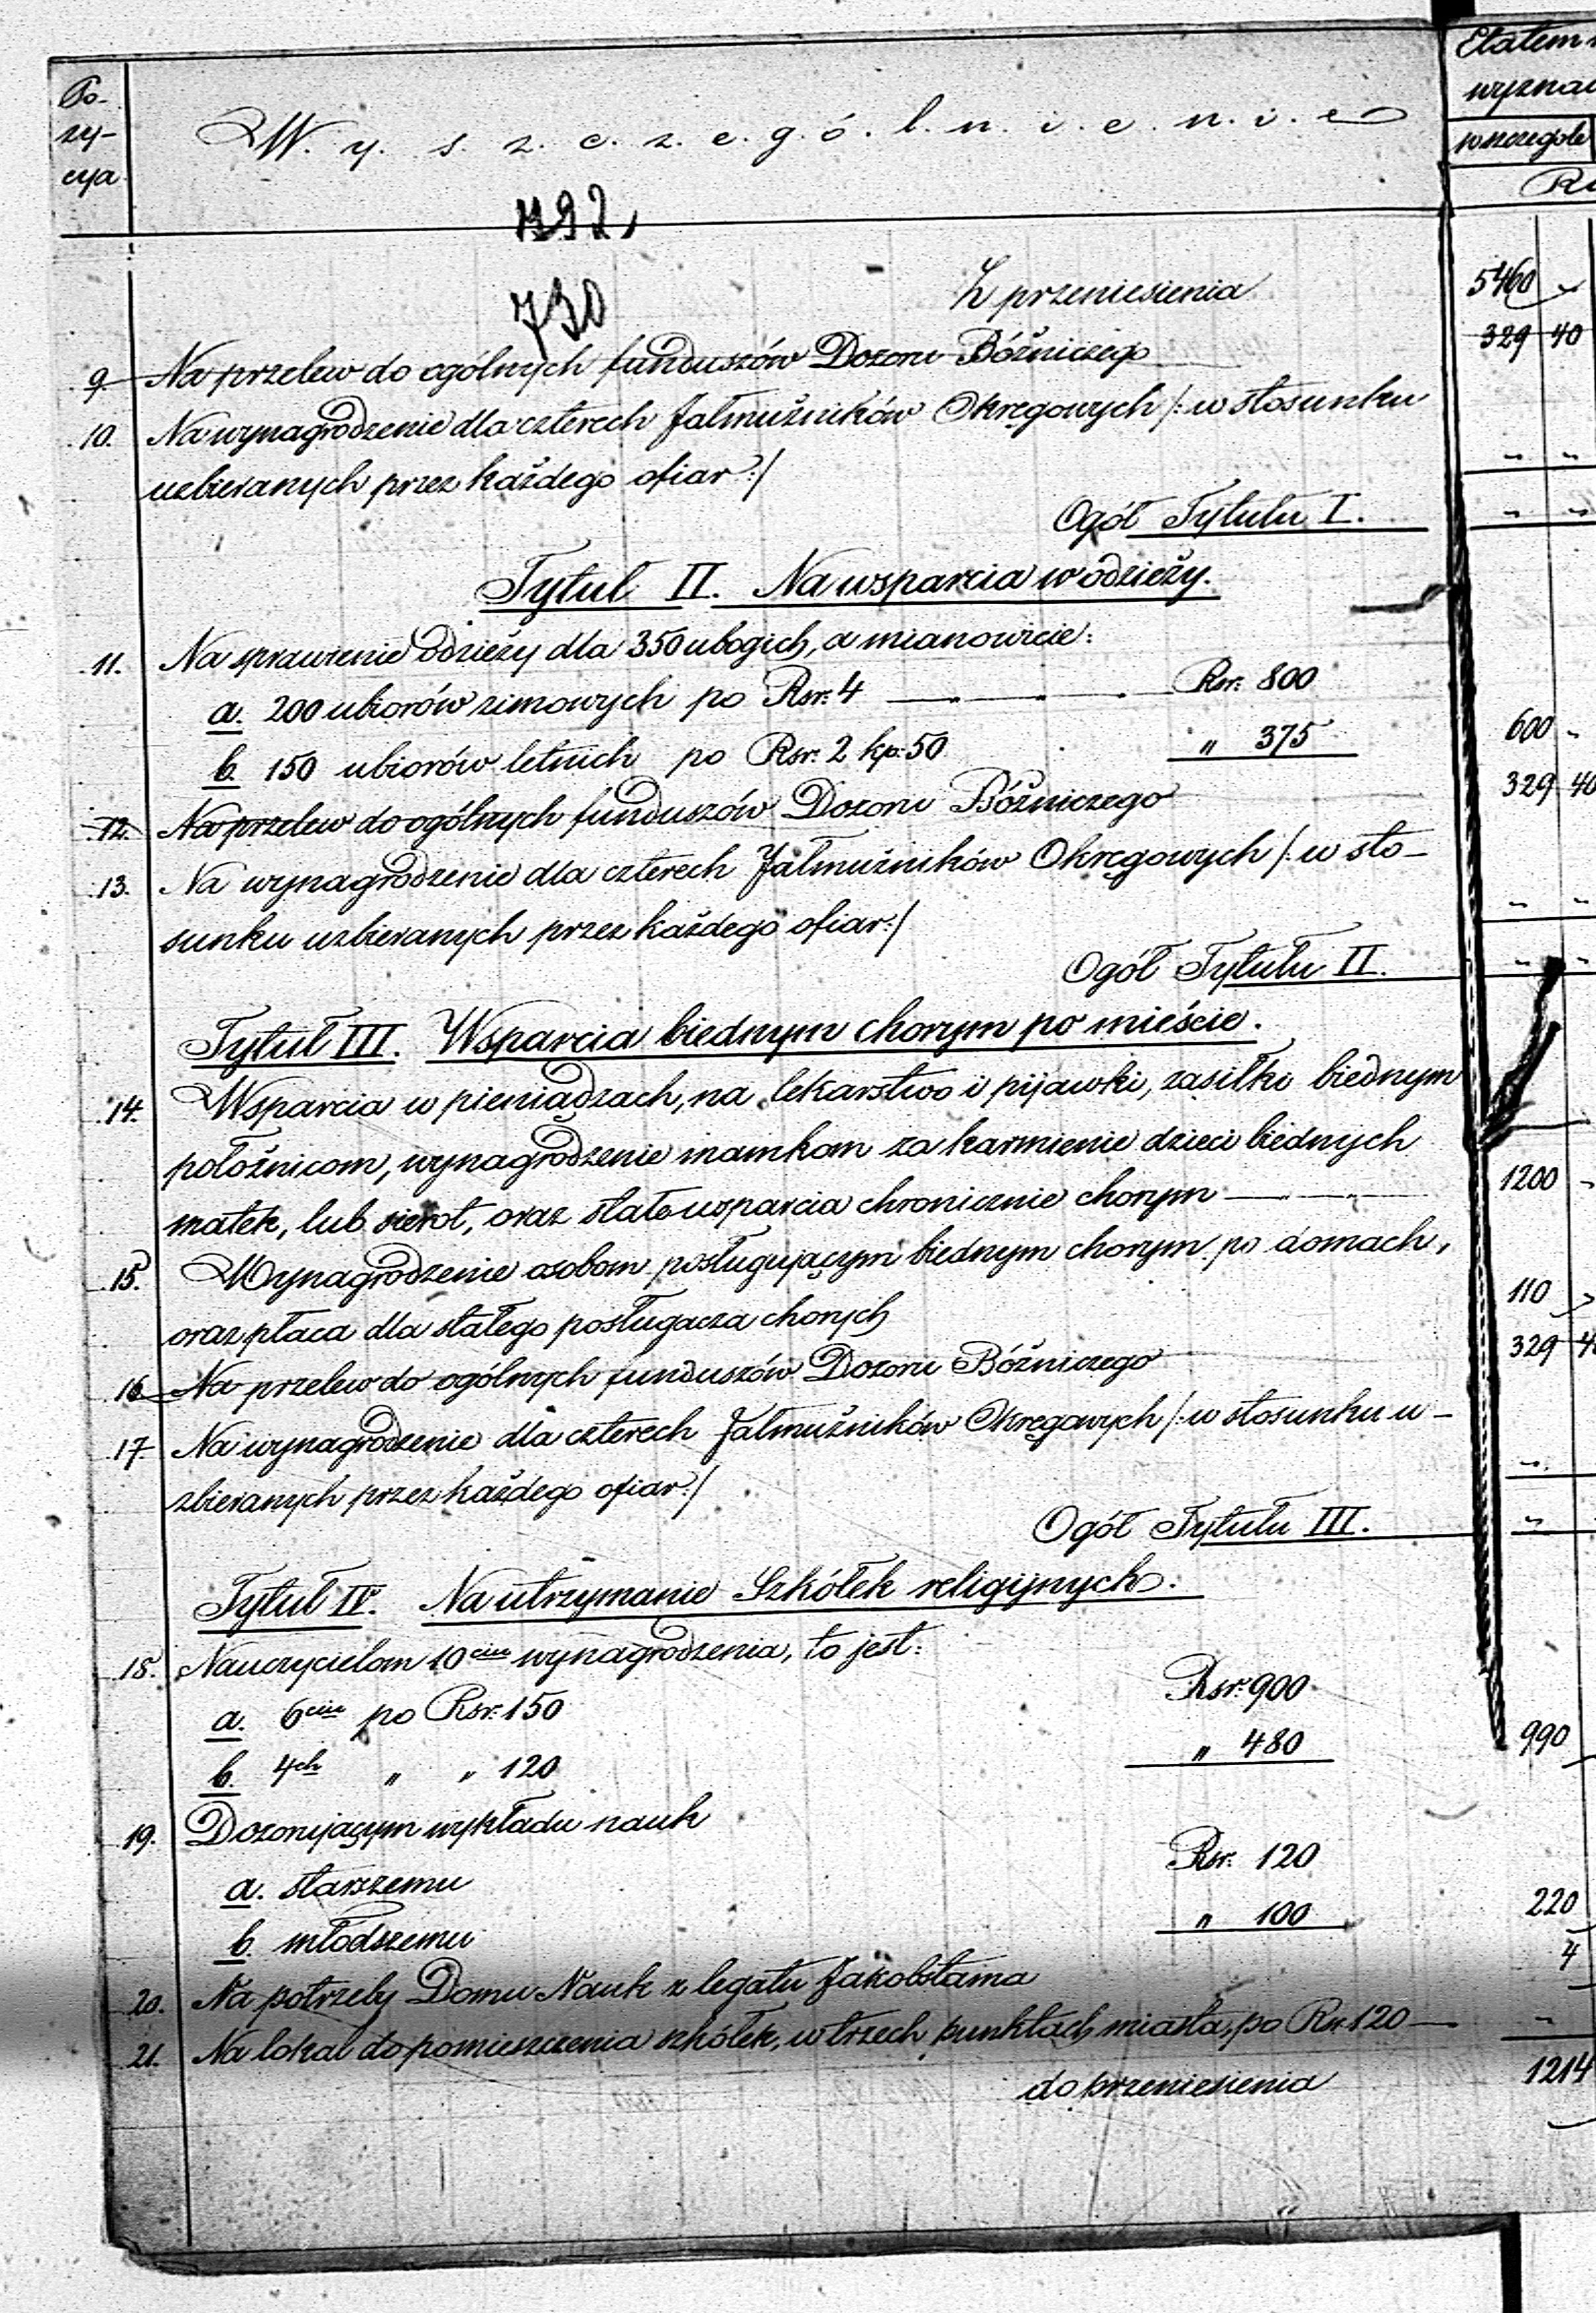 Po-
zy-
cya
W. y. s. z. c. z. e. g. ó. l. n. i. e. n. i. e
Etatem
wyzna
w szczególe
792,
730
Z przeniesienia 5460 "
9 Na przelew do ogólnych funduszów Dozoru Bóżniczego 329 40
10. Na wynagrodzenie dla czterech Jałmużników Okręgowych /: w stosunku
uzbieranych przez każdego ofiar :/ " "
Ogół Tytułu I. " "
Tytuł II. Na wsparcia w odzieży.
11. Na sprawienie odzieży dla 350 ubogich, a mianowicie:
a. 200 ubiorów zimowych po Rsr. 4 — Rsr. 800
b. 150 ubiorów letnich po Rsr. 2 kp. 50 " 375 600 "
12. Na przelew do ogólnych funduszów Dozoru Bóżniczego 329 40
13. Na wynagrodzenie dla czterech Jałmużników Okręgowych /: w sto-
sunku uzbieranych przez każdego ofiar :/ " "
Ogół Tytułu II. " "
Tytuł III. Wsparcia biednym chorym po mieście.
14. Wsparcia w pieniądzach, na lekarstwo i pijawki, zasiłki biednym
położnicom, wynagrodzenie mamkom za karmienie dzieci biednych
matek, lub sierot, oraz stałe wsparcia chronicznie chorym — 1200 "
15. Wynagrodzenie osobom posługującym biednym chorym po domach,
oraz płaca dla stałego posługacza chorych 110 "
16 Na przelew do ogólnych funduszów Dozoru Bóżniczego 329 4
17. Na wynagrodzenie dla czterech Jałmużników Okręgowych /: w stosunku u-
zbieranych przez każdego ofiar :/ "
Ogół Tytułu III. "
Tytuł IV. Na utrzymanie Szkółek religijnych.
18. Nauczycielom 10ciu wynagrodzenia, to jest:
a. 6ciu po Rsr. 150 Rsr. 900
b. 4ch " " 120 " 480 990
19. Dozorującym wykładu nauk
a. starszemu Rsr. 120
b. młodszemu " 100 220
20. Na potrzeby Domu Nauk z legatu Jakobstama 4
21. Na lokal do pomieszczenia szkółek, w trzech punktach miasta, po Rsr. 120 — "
do przeniesienia 1214